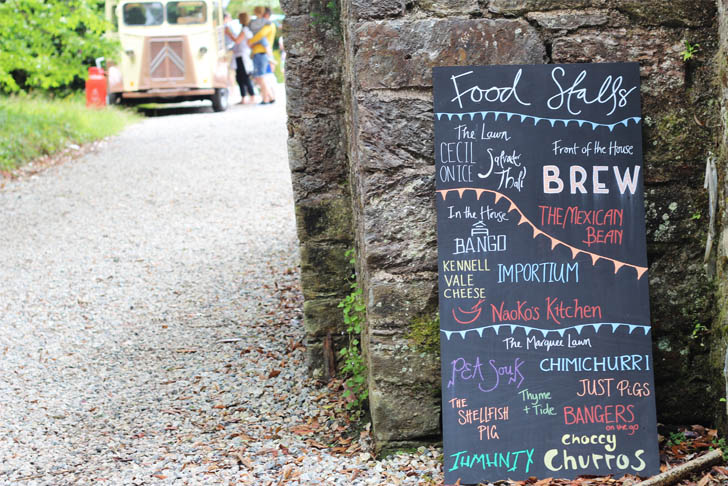 Food Stalls
The Lawn
CECIL
ON ICE
Salvate
Thali
Front of the House
BREW
In the House
BANGO
THE MEXICAN
BEAN
KENNELL
VALE
CHEESE
IMPORTIUM
NaoKo's Kitchen
The Marquee Lawn
PEA Souk
CHIMICHURRI
JUST PIGS
THE
SHELLFISH
PIG
Thyme
+ Tide
BANGERS
on the go
IHMHNITY
choccy
Churros